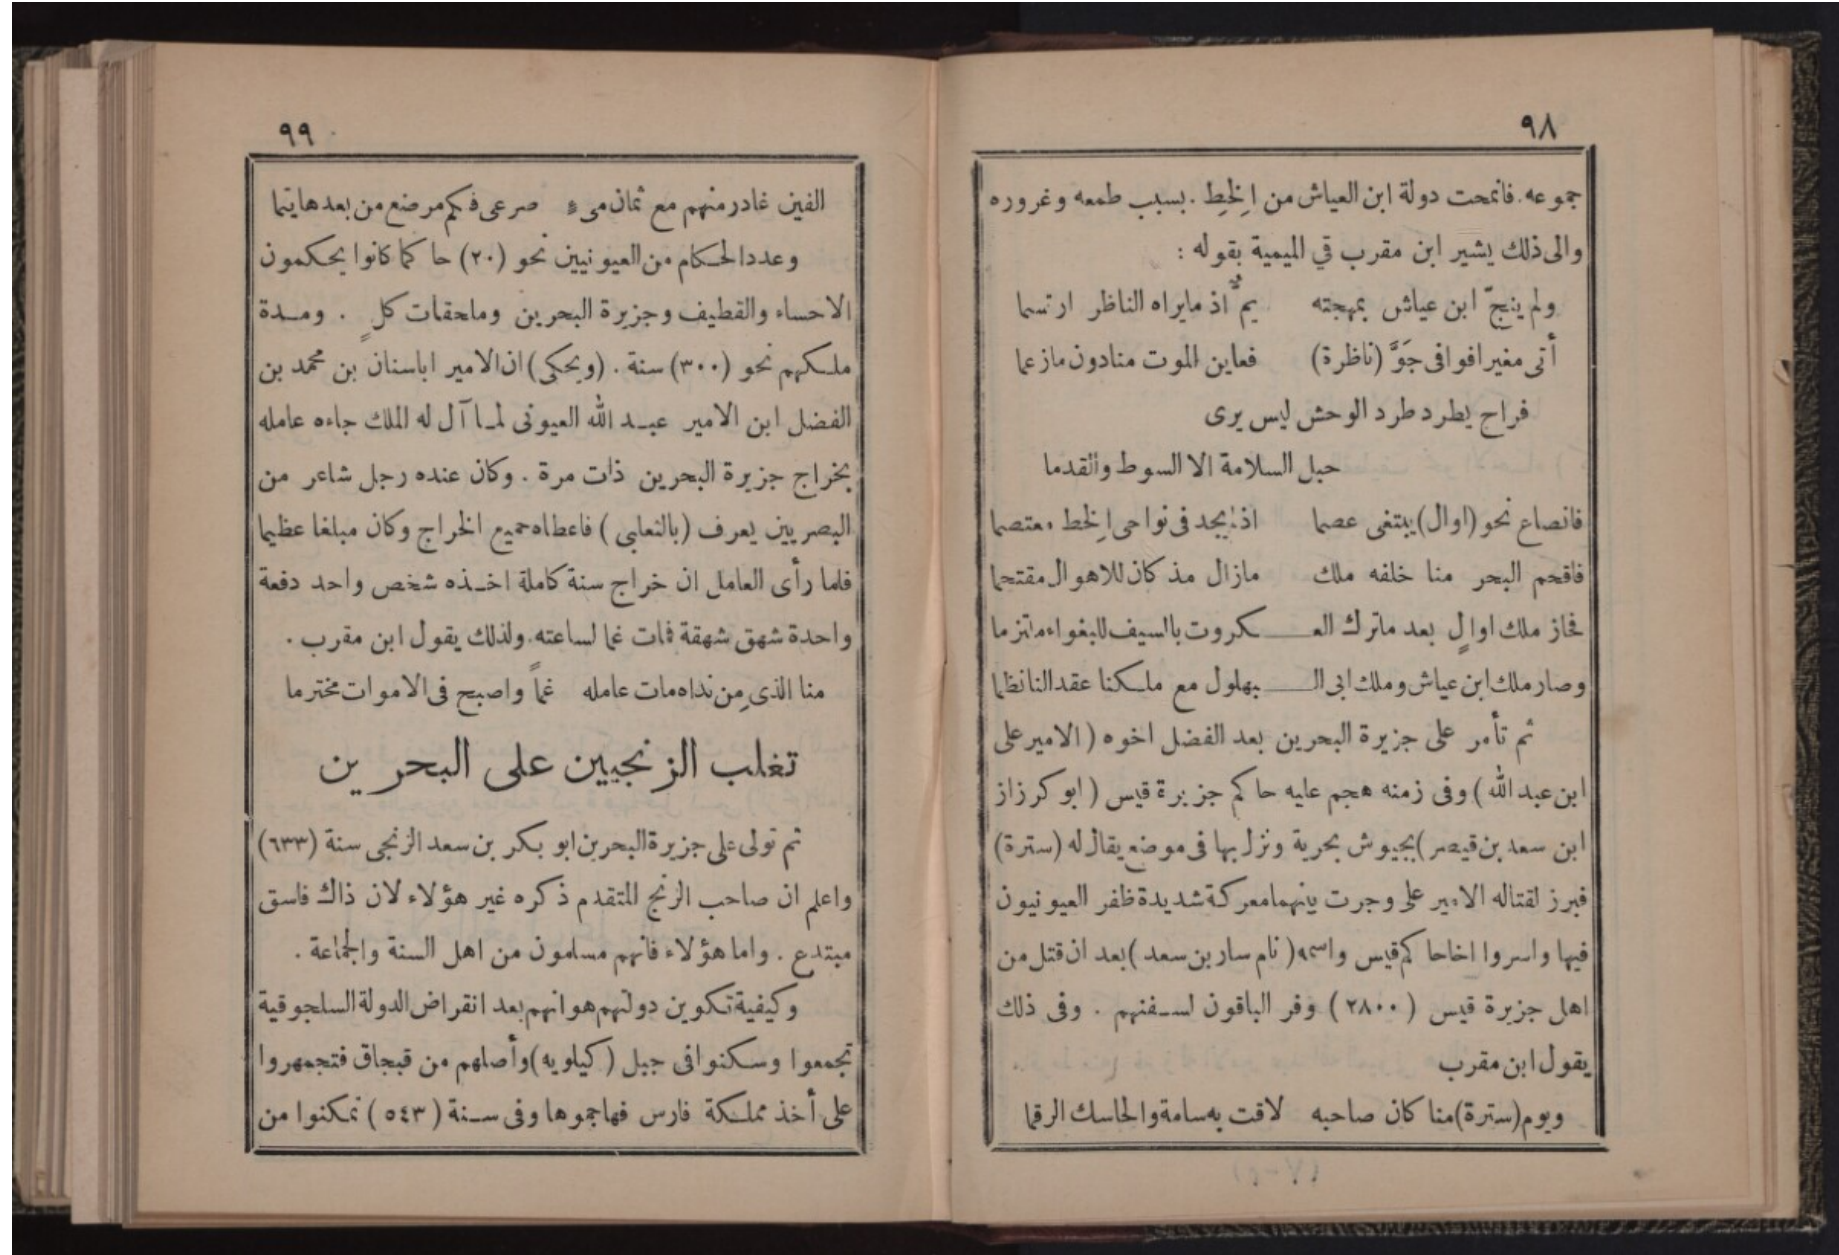 ٩٨
جموعه. فانمحت دولة ابن العياش من الخط. بسبب طمعه وغروره
والى ذلك يشير ابن مقرب في الميمية بقوله :
ولم ينجّ ابن عياش بمهجته يمٌّ اذ مايراه الناظر ارتسما
أتى مغيرا فوافى جَوَّ (ناظرة) فعاين الموت منا دون مازعما
فراح يطرد طرد الوحش ليس يرى
حبل السلامة الا السوط والقدما
فانصاع نحو (اوال) يبتغى عصما اذ لم يجد فى نواحى الخط معتصما
فاقحم البحر منا خلفه ملك مازال مذ كان للاهوال مقتحما
فحاز ملك اوالٍ بعد ماترك العـ ـكروت بالسيف للبغواء ملتزما
وصار ملك ابن عياش وملك ابى الـ ـبهلول مع ملكنا عقدا لنا نظما
ثم تأمر على جزيرة البحرين بعد الفضل اخوه (الامير على
ابن عبد الله) وفى زمنه هجم عليه حاكم جزيرة قيس (ابو كرزاز
ابن سعد بن قيصر) بجيوش بحرية ونزل بها فى موضع يقال له (سترة)
فبرز لقتاله الامير على وجرت بينهما معركة شديدة ظفر العيونيون
فيها واسروا اخا حاكم قيس واسمه (نام سار بن سعد) بعد ان قتل من
اهل جزيرة قيس (٢٨٠٠) وفر الباقون لسفنهم . وفى ذلك
يقول ابن مقرب
ويوم (سترة) منا كان صاحبه لاقت به سامة والحاسك الرقما
٩٩
الفين غادر منهم مع ثمان مىء صرعى فكم مرضع من بعدها يتما
وعدد الحكام من العيونيين نحو (٢٠) حاكما كانوا يحكمون
الاحساء والقطيف وجزيرة البحرين وملحقات كلٍ . ومدة
ملكهم نحو (٣٠٠) سنة . (ويحكى) ان الامير اباسنان بن محمد بن
الفضل ابن الامير عبد الله العيونى لما آل له الملك جاءه عامله
بخراج جزيرة البحرين ذات مرة . وكان عنده رجل شاعر من
البصريين يعرف (بالنعابى) فاعطاه جميع الخراج وكان مبلغا عظيما
فلما رأى العامل ان خراج سنة كاملة اخذه شخص واحد دفعة
واحدة شهق شهقة فمات غما لساعته. ولذلك يقول ابن مقرب .
منا الذى مِن نداه مات عامله غماً واصبح فى الاموات مخترما
تغلب الزنجيين على البحرين
ثم تولى على جزيرة البحرين ابو بكر بن سعد الزنجى سنة (٦٣٣)
واعلم ان صاحب الزنج المتقدم ذكره غير هؤلاء لان ذاك فاسق
مبتدع . واما هؤلاء فانهم مسلمون من اهل السنة والجماعة .
وكيفية تكوين دولتهم هو انهم بعد انقراض الدولة السلجوقية
تجمعوا وسكنوا فى جبل (كيلويه) وأصلهم من قبجاق فتجمهروا
على أخذ مملكة فارس فهاجموها وفى سنة (٥٤٣) تمكنوا من